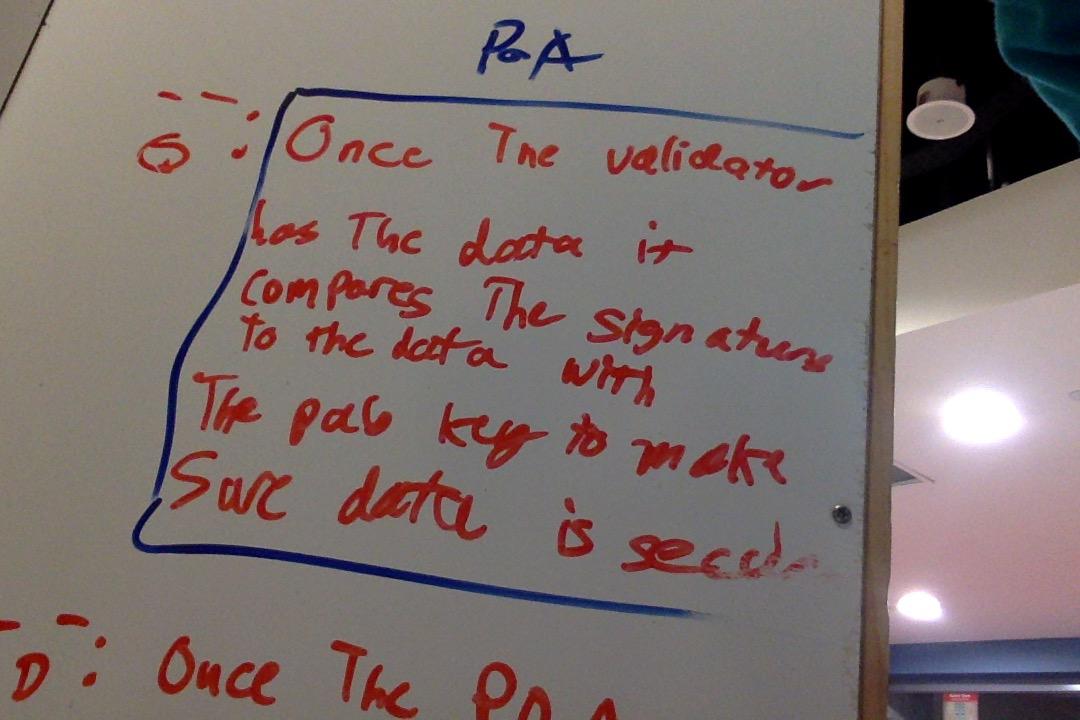 PoA
S: Once The validator
has The data it
compares The signature
to the data with
The pub key to make
Sure data is
D: Once The POA